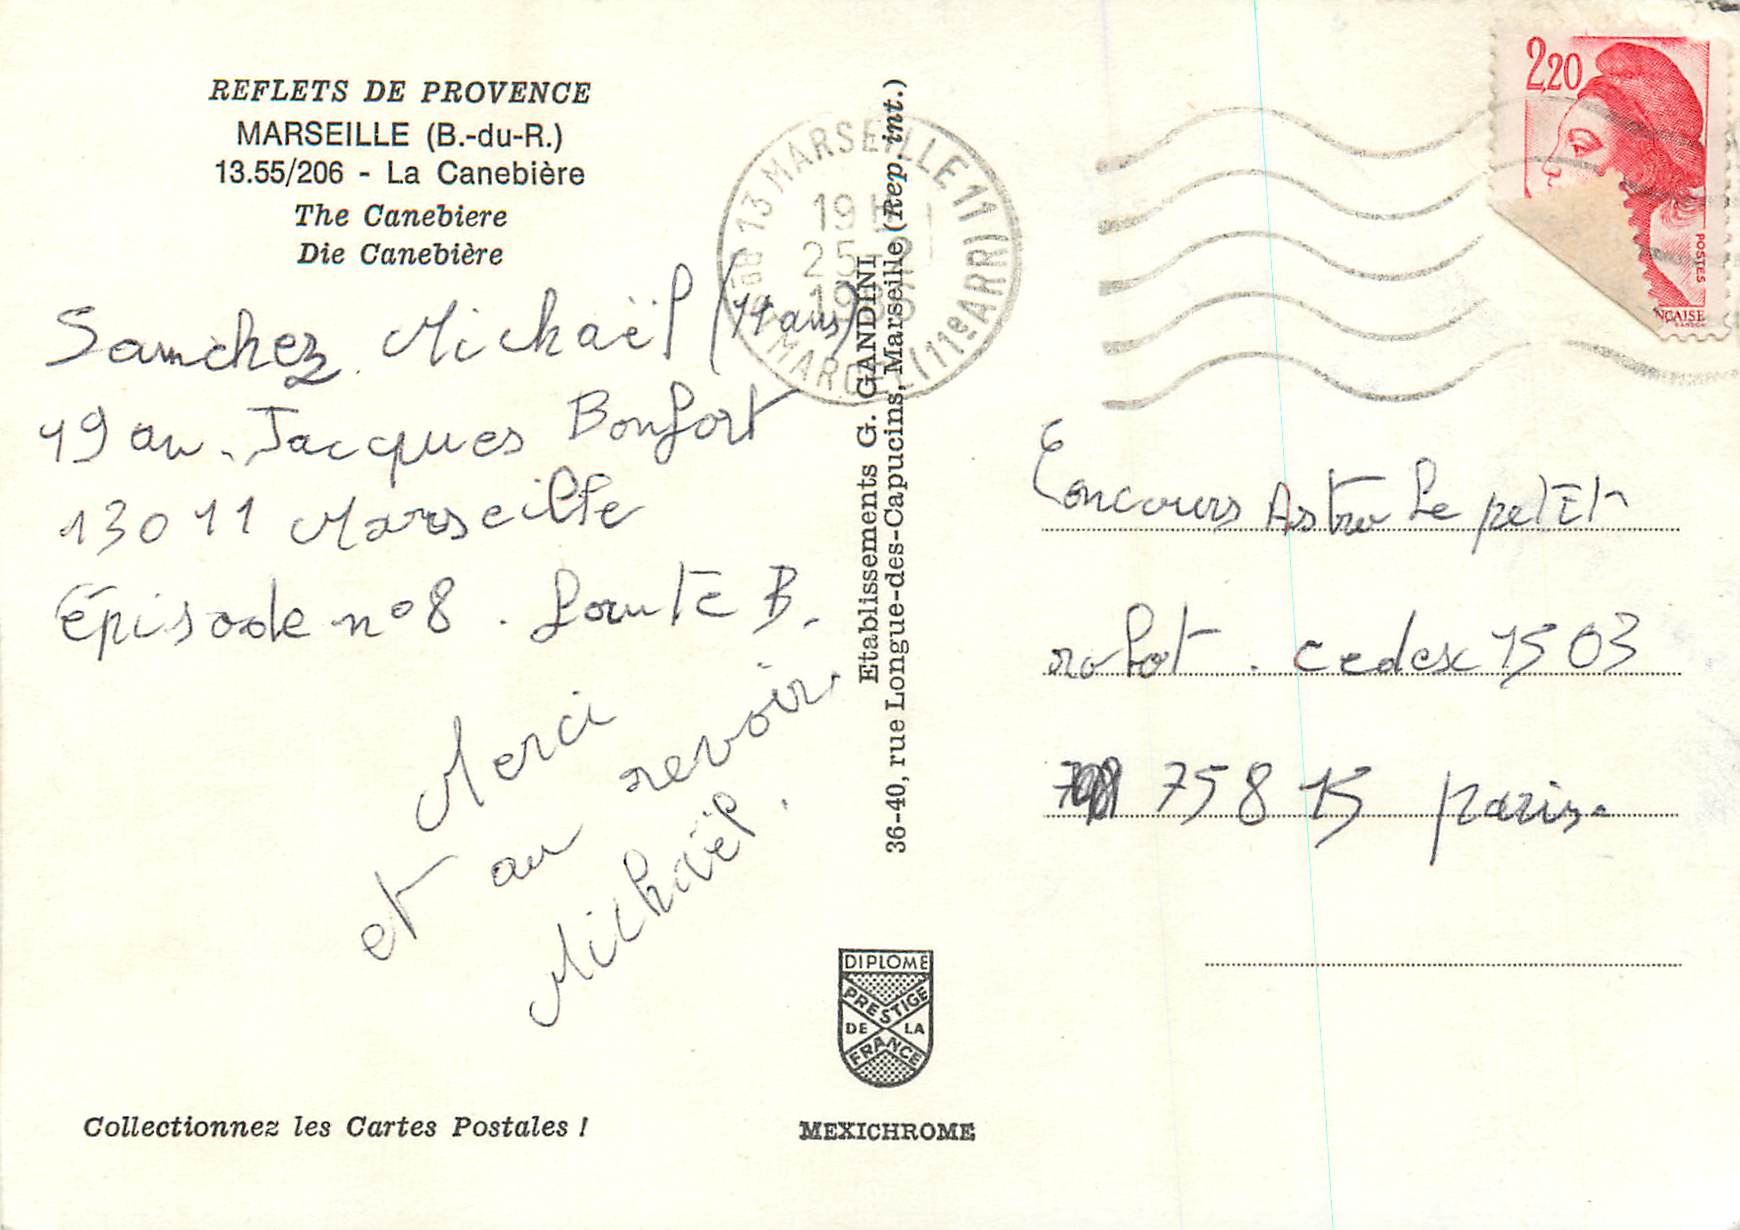 REFLETS DE PROVENCE
MARSEILLE (B.-du-R.)
13.55/206 - La Canebière
The Canebiere
Die Canebière
Sanchez Mickaël (11 ans)
19 av. Jacques Bonfort
13011 Marseille
Épisode n°8. Route B.
Merci
et au revoir.
Mickaël.
Collectionnez les Cartes Postales !
Etablissements G. GANDINI
36-40, rue Longue-des-Capucins, Marseille (Rep. int.)
DIPLOME
PRESTIGE
DE LA
FRANCE
MEXICHROME
13 MARSEILLE 11 (11e ARR)
19 H
25
2,20
POSTES
NÇAISE
Concours Astro le petit
robot. cedex 1503
75815 Paris.